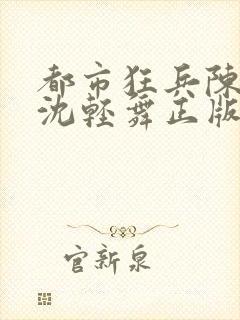 都市狂兵陳
沈輕舞正版
官新泉